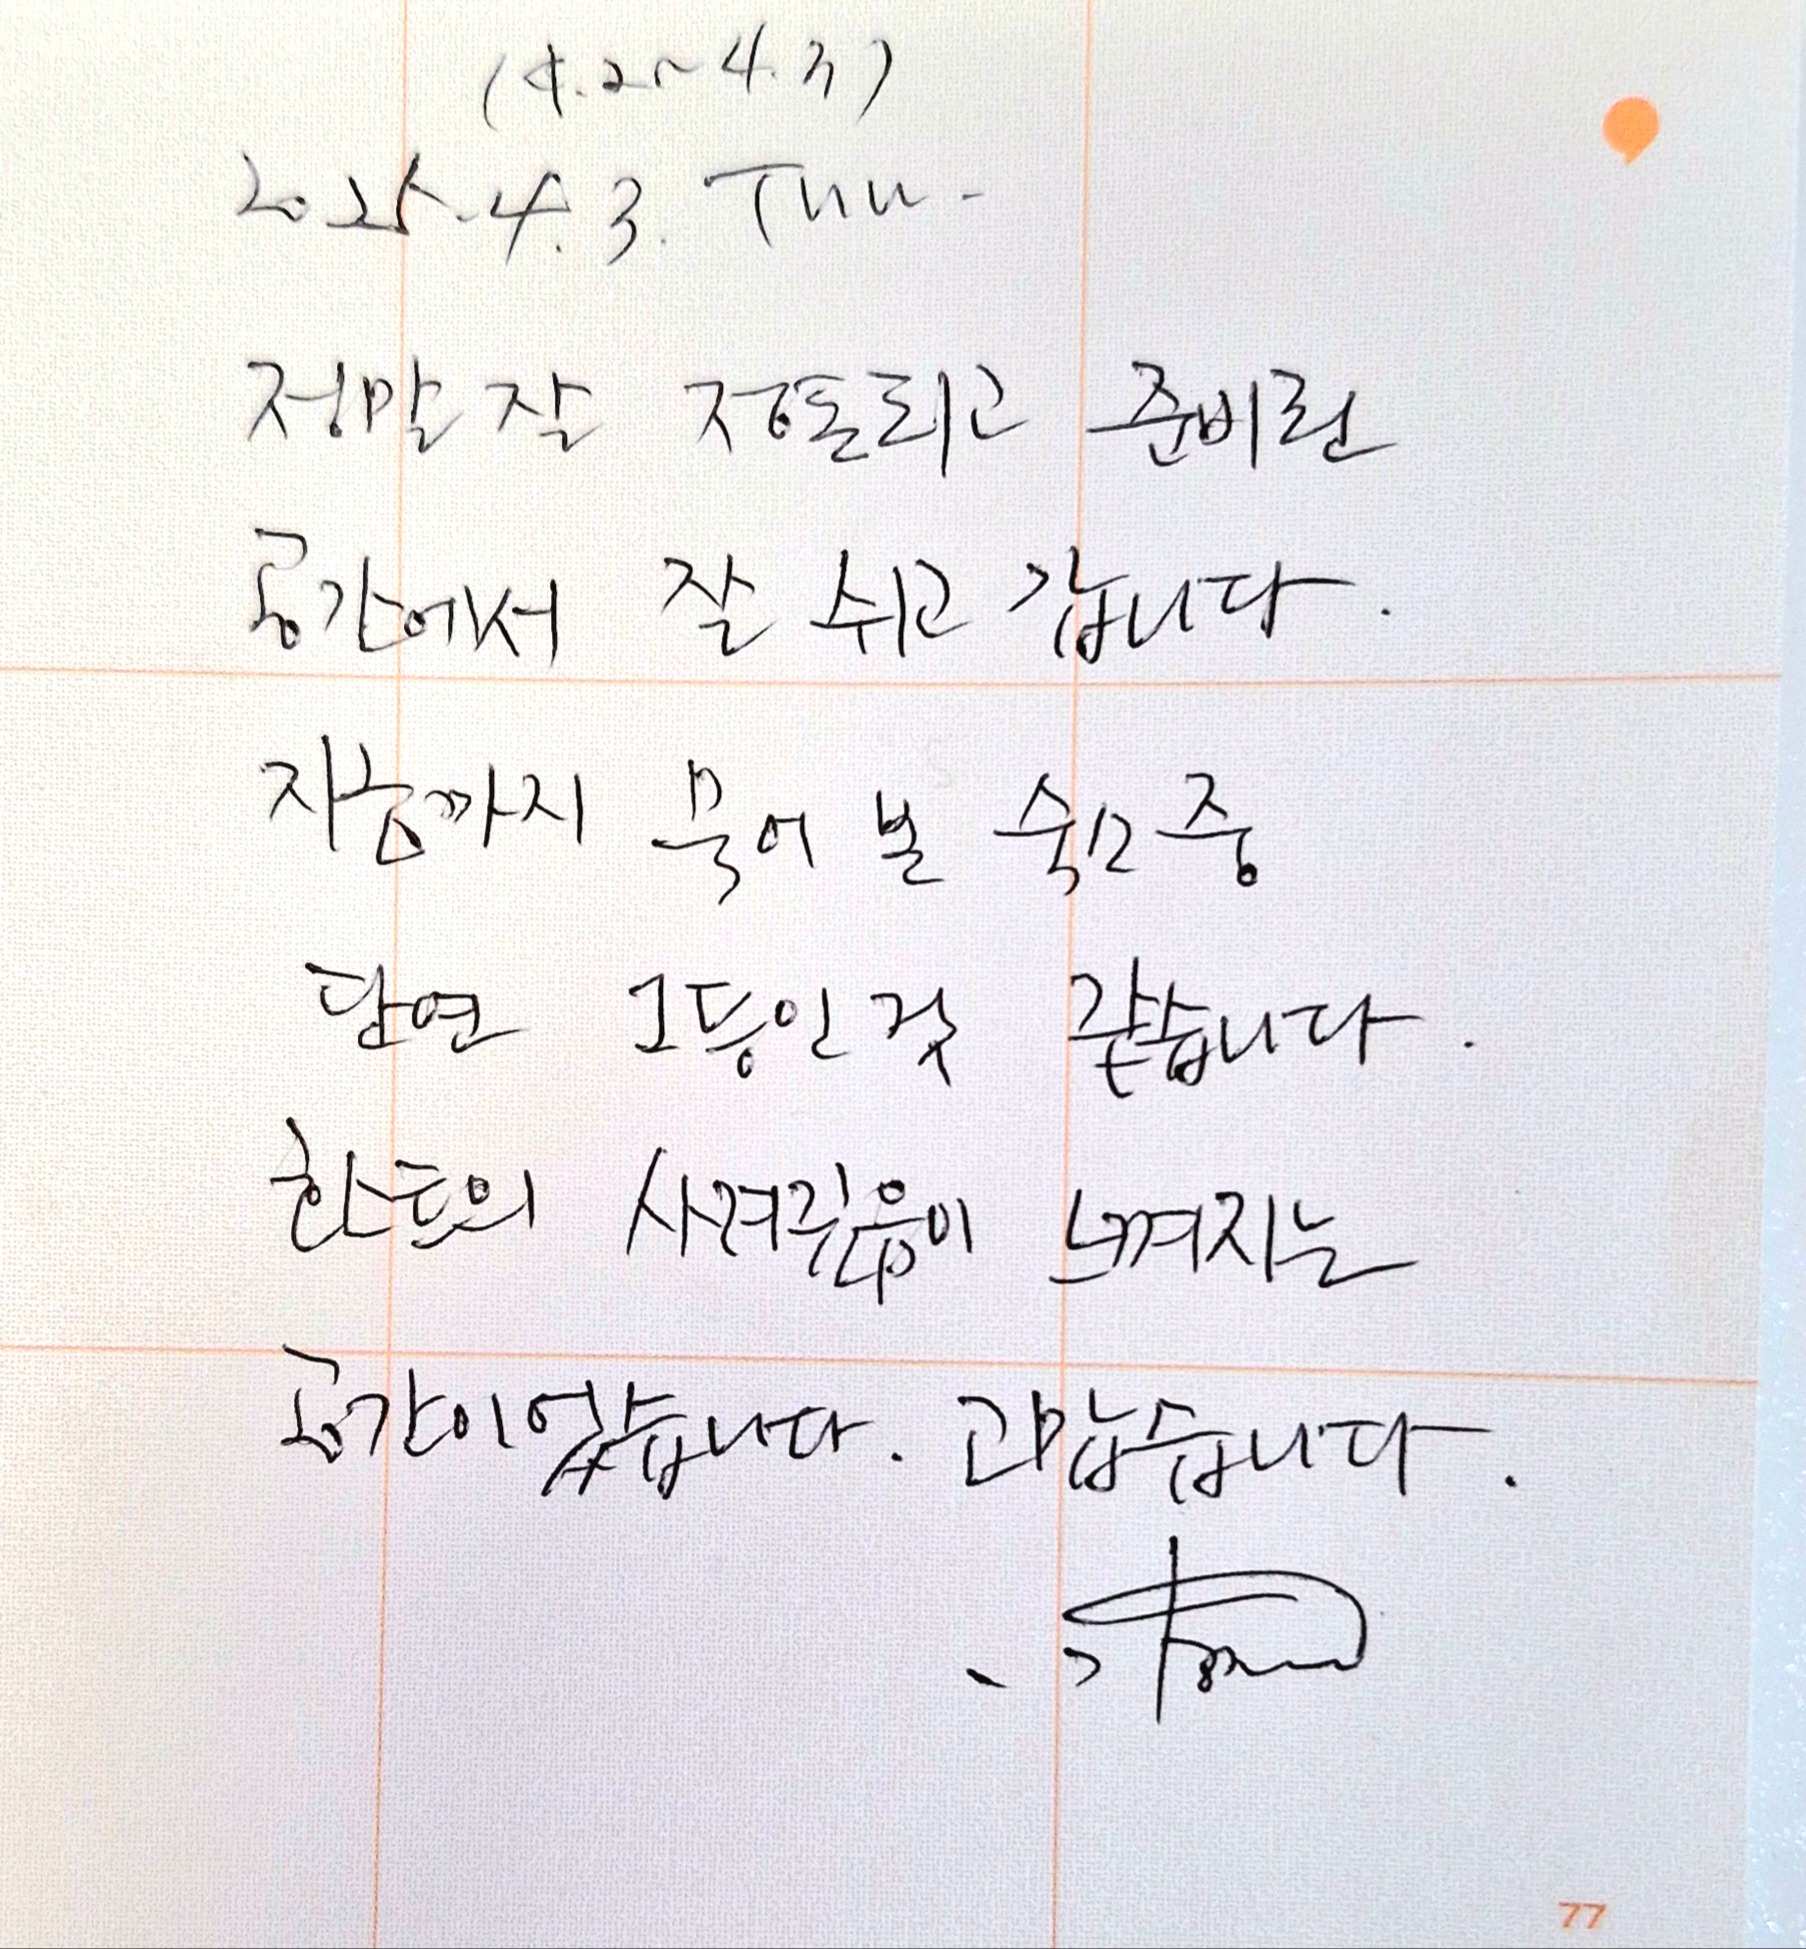 (4.2~4.3)
2025.4.3. Thu.
정말 잘 정돈되고 준비된
공간에서 잘 쉬고 갑니다.
지금까지 묵어 본 숙소 중
단연 1등인 것 같습니다.
호스트의 사려깊음이 느껴지는
공간이었습니다. 고맙습니다.
77